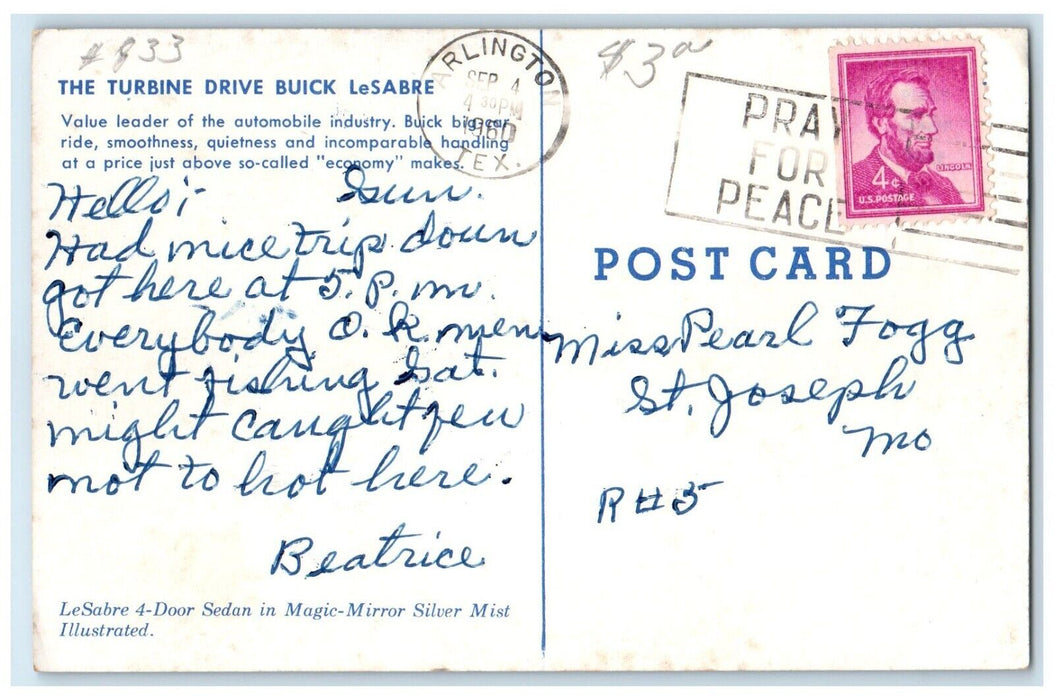 # 833
THE TURBINE DRIVE BUICK LeSABRE
Value leader of the automobile industry. Buick big-car
ride, smoothness, quietness and incomparable handling
at a price just above so-called "economy" makes.
Hello:- Sun.
Had nice trip down
got here at 5. P. m.
Everybody O. K. men
went fishing Sat.
night caught few
not to hot here.
Beatrice
LeSabre 4-Door Sedan in Magic-Mirror Silver Mist
Illustrated.
ARLINGTON
SEP 4
4 30 PM
1960
TEX.
$3
PRAY
FOR
PEACE
LINCOLN
4¢
U.S. POSTAGE
POST CARD
Miss Pearl Fogg
St. Joseph
Mo
R#5